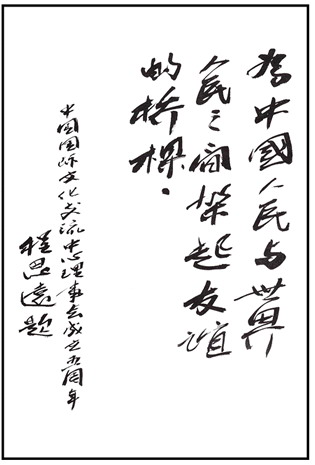 為中國人民与世界
人民之间架起友谊
的桥樑。
中国国际文化交流中心理事会成立五周年
程思遠题